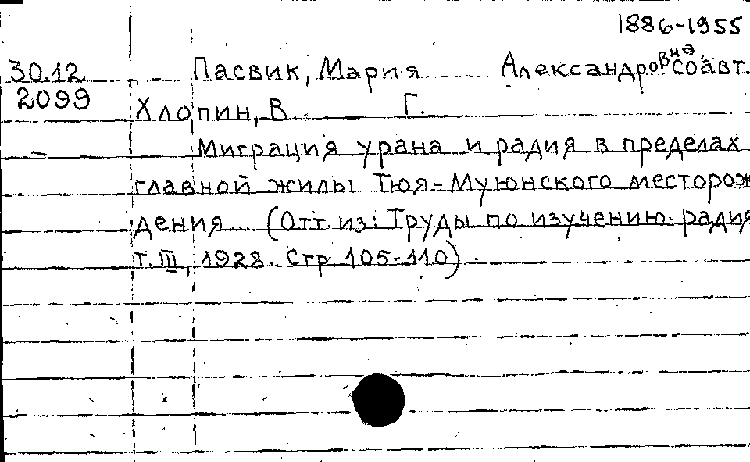 1886-1955
30.12 Пасвик, Мария Александровна, соавт.
2099 Хлопин, В Г.
Миграция урана и радия в пределах
главной жилы Тюя-Муюнского месторож
дения (Отт. из: Труды по изучению радия
т. III, 1928. Стр 105-110)